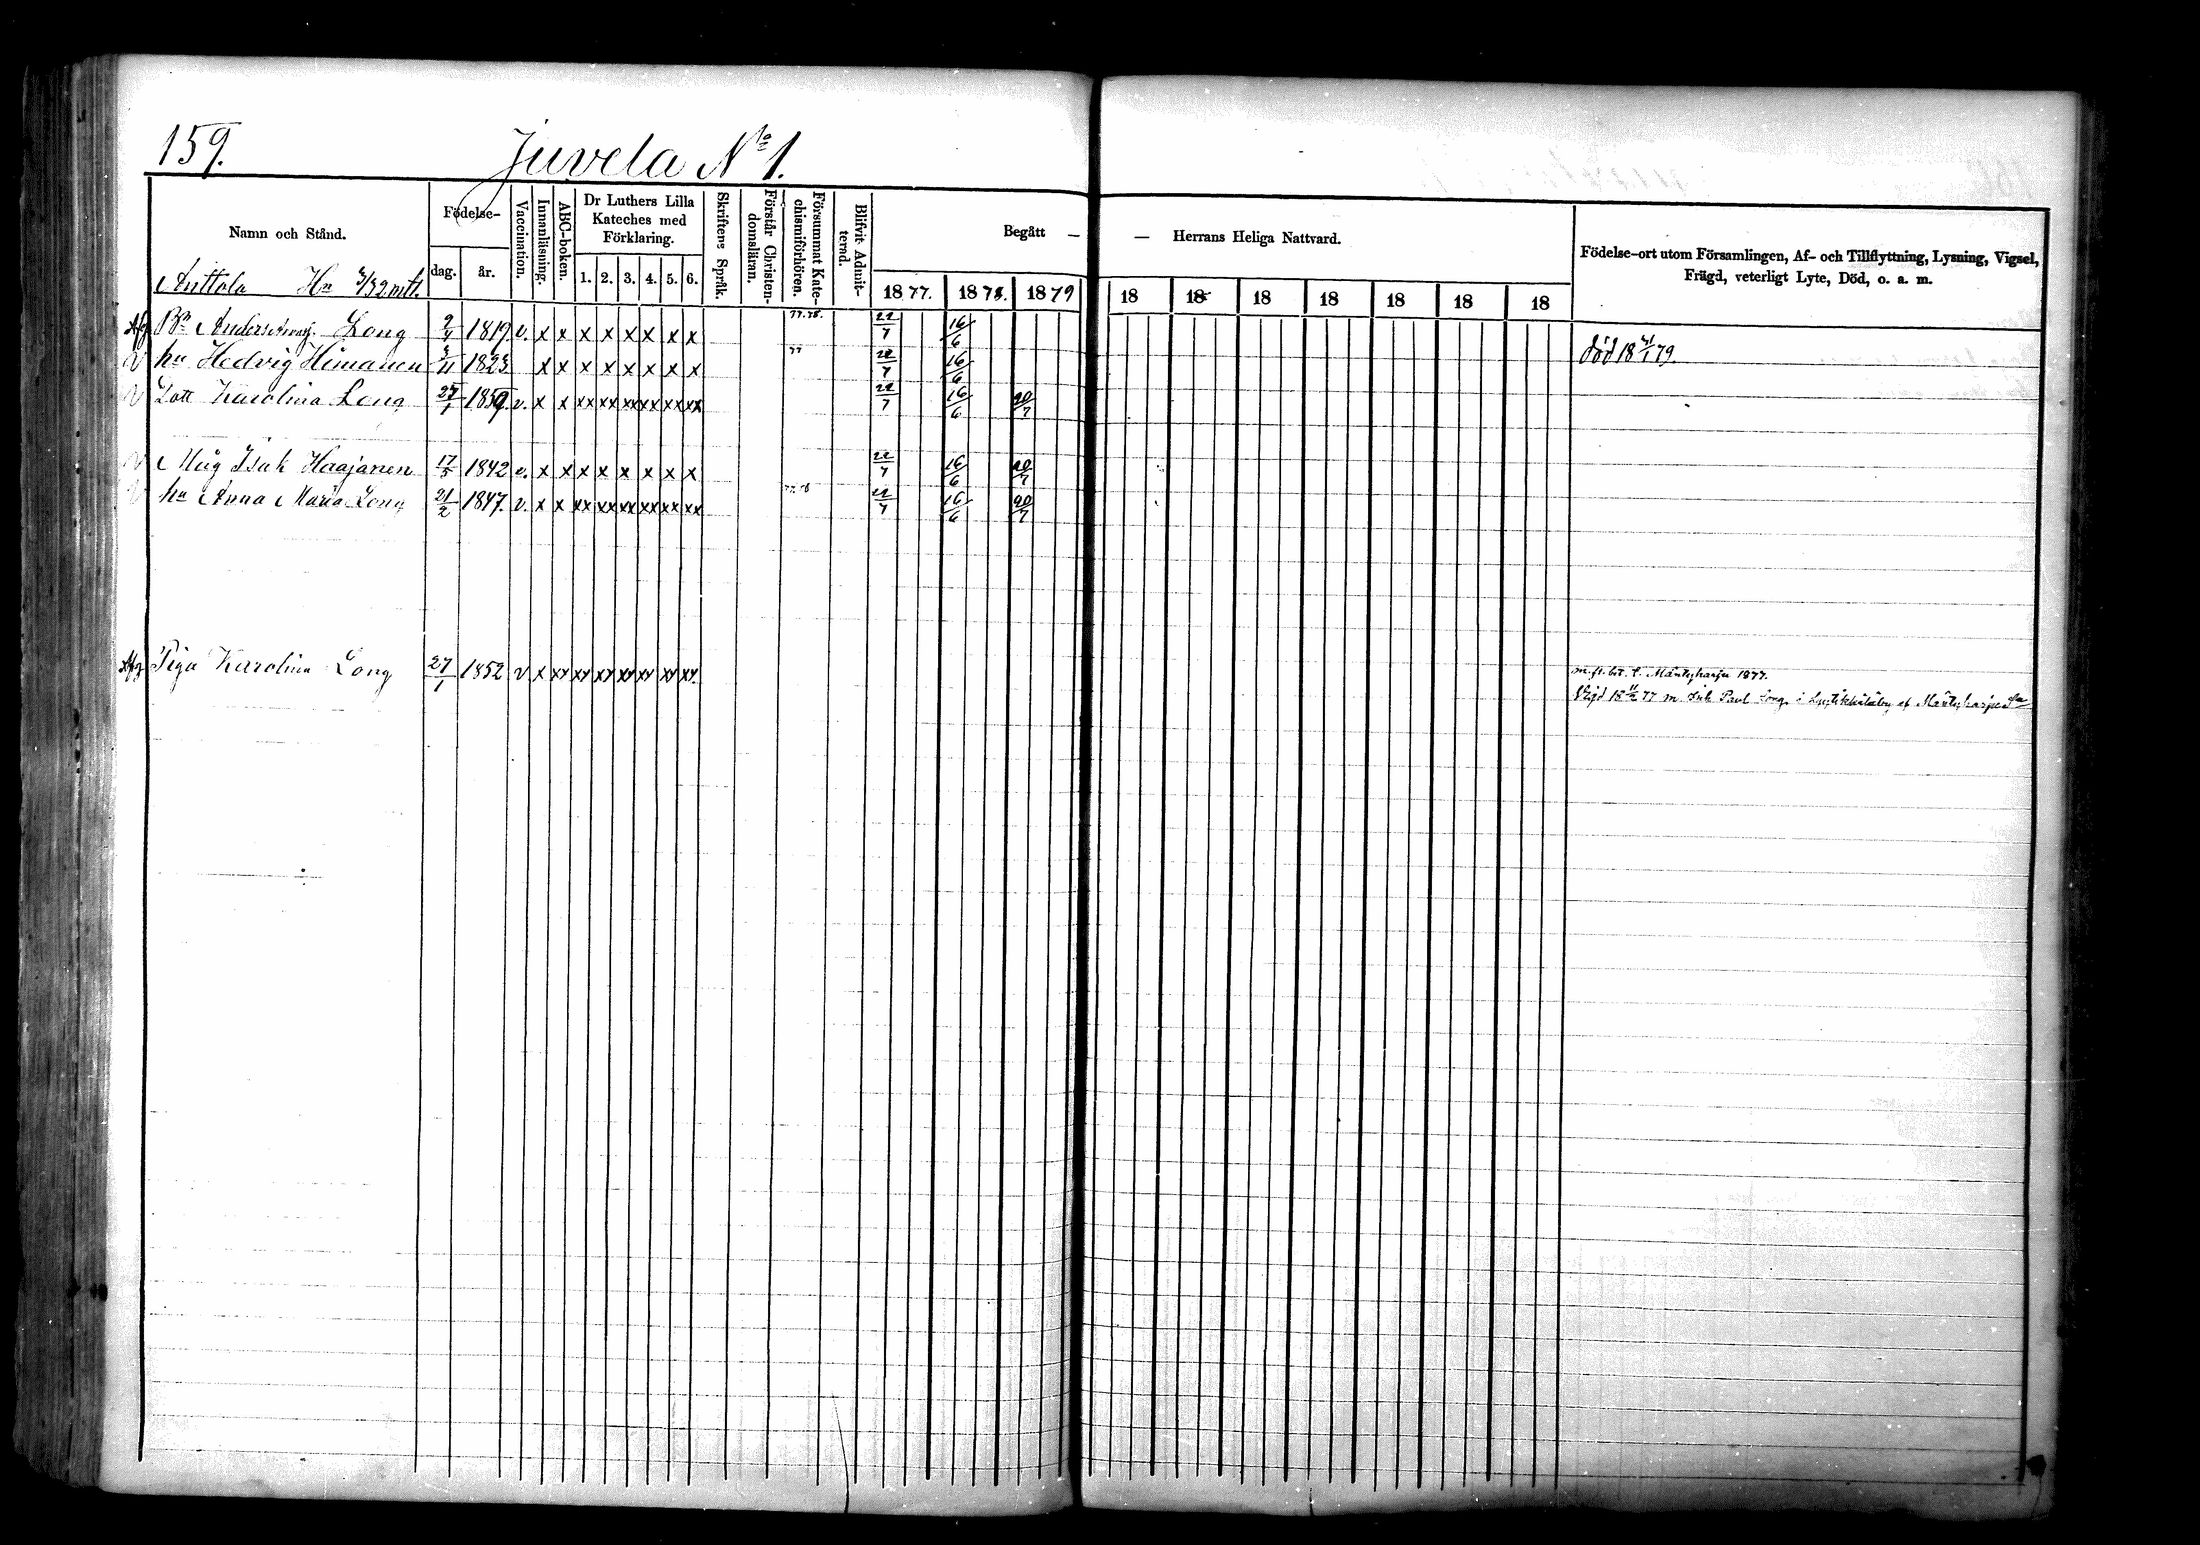 159.
Juvela No 1.
Namn och Stånd.
Födelse-
dag.
år.
Vaccination.
Innanläsning.
ABC-boken.
Dr Luthers Lilla
Kateches med
Förklaring.
1. 2. 3. 4. 5. 6.
Skriftens Språk.
Förstår Christen-
domsläran.
Försummat Kate-
chismiförhören.
Blifvit Admit-
terad.
Begått — — Herrans Heliga Nattvard.
1877. 1878. 1879 18 18 18 18 18 18 18
Födelse-ort utom Församlingen, Af- och Tillflyttning, Lysning, Vigsel,
Frägd, veterligt Lyte, Död, o. a. m.
Anttola Hn mtl.
Anders Long 9/4 1819 v. x x x x x x x x 77. 78. 22/7 16/6
hu Hedvig Himanen 1823 x x x x x x x x 77 22/7 16/6 död 18 79
Karolina Long 27/1 v. x x xx xx xx xx xx xx 22/7 16/6 20/7
Måg Isak Haajanen 17/5 1842 v. x x x x x x x x 22/7 16/6 20/7
hu Anna Maria Long 21/2 1847. v. x x xx xx xx xx xx xx 22/7 16/6 20/7
Piga Karolina Long 27/1 1852 v x xx xx xx xx xx xx xx. m. fl. bet. t. Mäntyharju 1877.
Vigd 18 77 m. Paul Long i af Mäntyharju